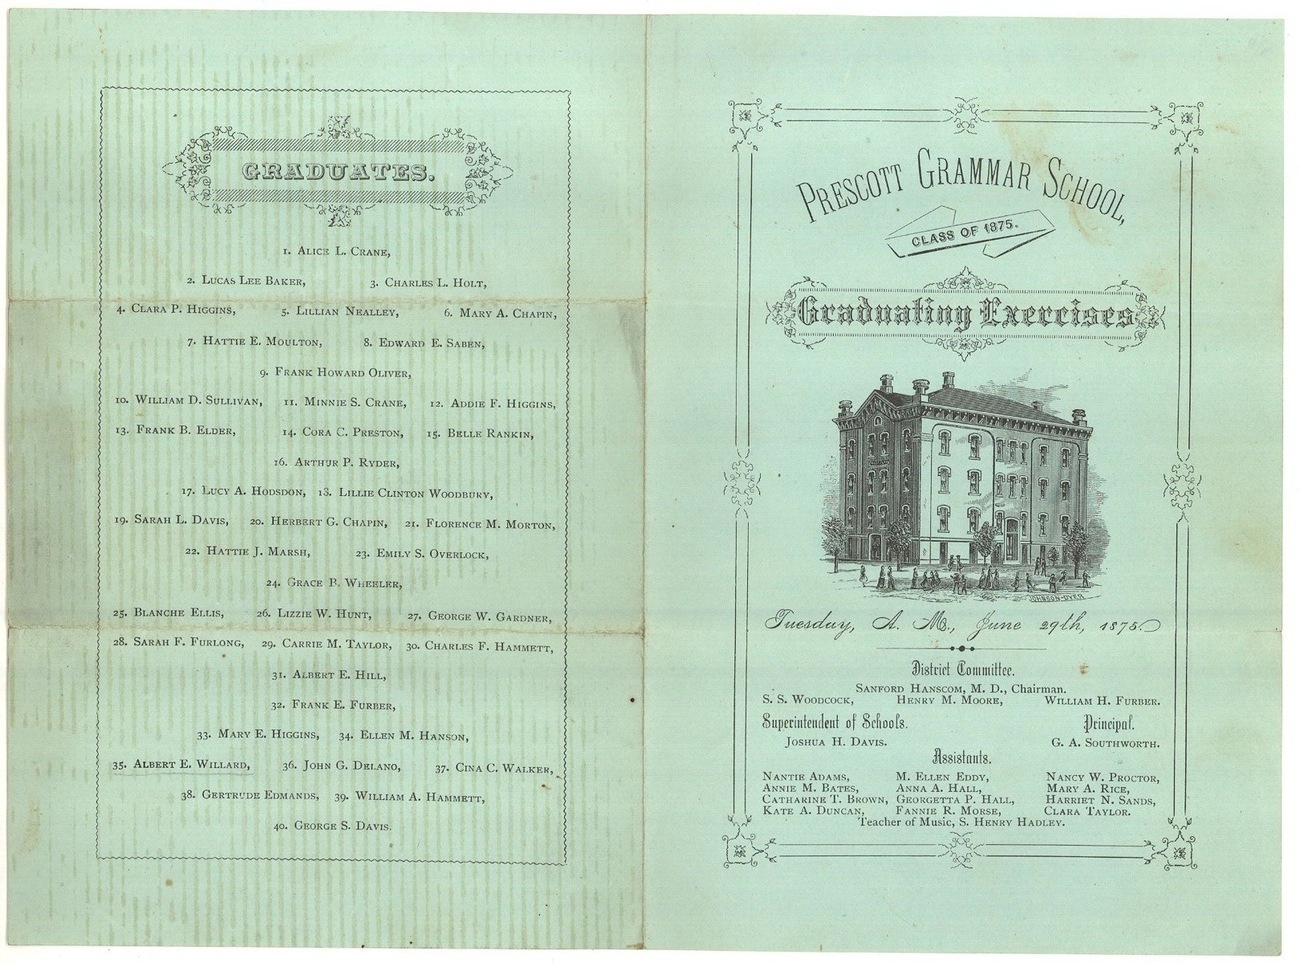 GRADUATES.
1. ALICE L. CRANE,
2. LUCAS LEE BAKER, 3. CHARLES L. HOLT,
4. CLARA P. HIGGINS, 5. LILLIAN NEALLEY, 6. MARY A. CHAPIN,
7. HATTIE E. MOULTON, 8. EDWARD E. SABEN,
9. FRANK HOWARD OLIVER,
10. WILLIAM D. SULLIVAN, 11. MINNIE S. CRANE, 12. ADDIE F. HIGGINS,
13. FRANK B. ELDER, 14. CORA C. PRESTON, 15. BELLE RANKIN,
16. ARTHUR P. RYDER,
17. LUCY A. HODSDON, 18. LILLIE CLINTON WOODBURY,
19. SARAH L. DAVIS, 20. HERBERT G. CHAPIN, 21. FLORENCE M. MORTON,
22. HATTIE J. MARSH, 23. EMILY S. OVERLOCK,
24. GRACE B. WHEELER,
25. BLANCHE ELLIS, 26. LIZZIE W. HUNT, 27. GEORGE W. GARDNER,
28. SARAH F. FURLONG, 29. CARRIE M. TAYLOR, 30. CHARLES F. HAMMETT,
31. ALBERT E. HILL,
32. FRANK E. FURBER,
33. MARY E. HIGGINS, 34. ELLEN M. HANSON,
35. ALBERT E. WILLARD, 36. JOHN G. DELANO, 37. CINA C. WALKER,
38. GERTRUDE EDMANDS, 39. WILLIAM A. HAMMETT,
40. GEORGE S. DAVIS.
PRESCOTT GRAMMAR SCHOOL,
CLASS OF 1875.
Graduating Exercises
JOHNSON-DYER
Tuesday, A. M., June 29th, 1875.
District Committee.
SANFORD HANSCOM, M. D., Chairman.
S. S. WOODCOCK, HENRY M. MOORE, WILLIAM H. FURBER.
Superintendent of Schools. Principal.
JOSHUA H. DAVIS. G. A. SOUTHWORTH.
Assistants.
NANTIE ADAMS, M. ELLEN EDDY, NANCY W. PROCTOR,
ANNIE M. BATES, ANNA A. HALL, MARY A. RICE,
CATHARINE T. BROWN, GEORGETTA P. HALL, HARRIET N. SANDS,
KATE A. DUNCAN, FANNIE R. MORSE, CLARA TAYLOR.
Teacher of Music, S. HENRY HADLEY.